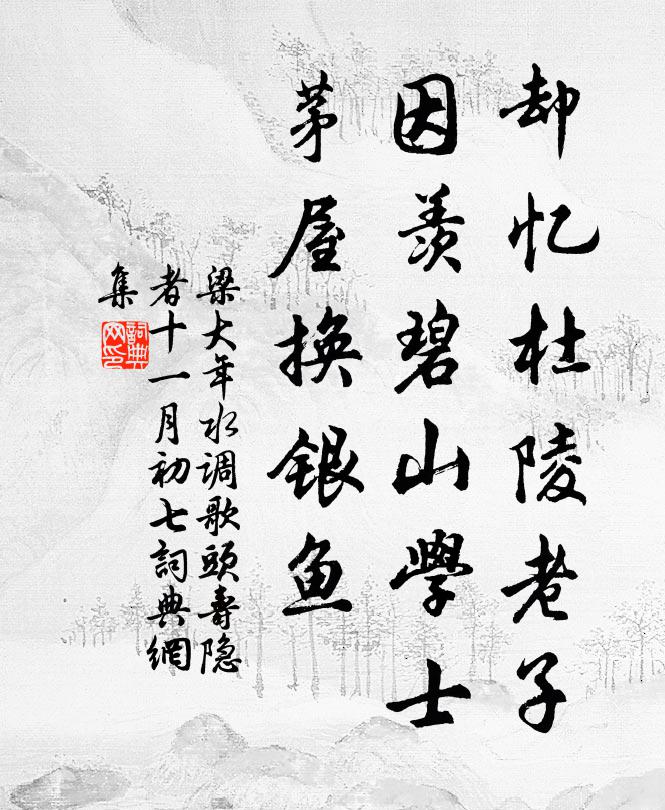 却忆杜陵老子
因羡碧山學士
茅屋换银鱼
梁大年水调歌頭壽隐
者十一月初七詞典網
集
詞典网印